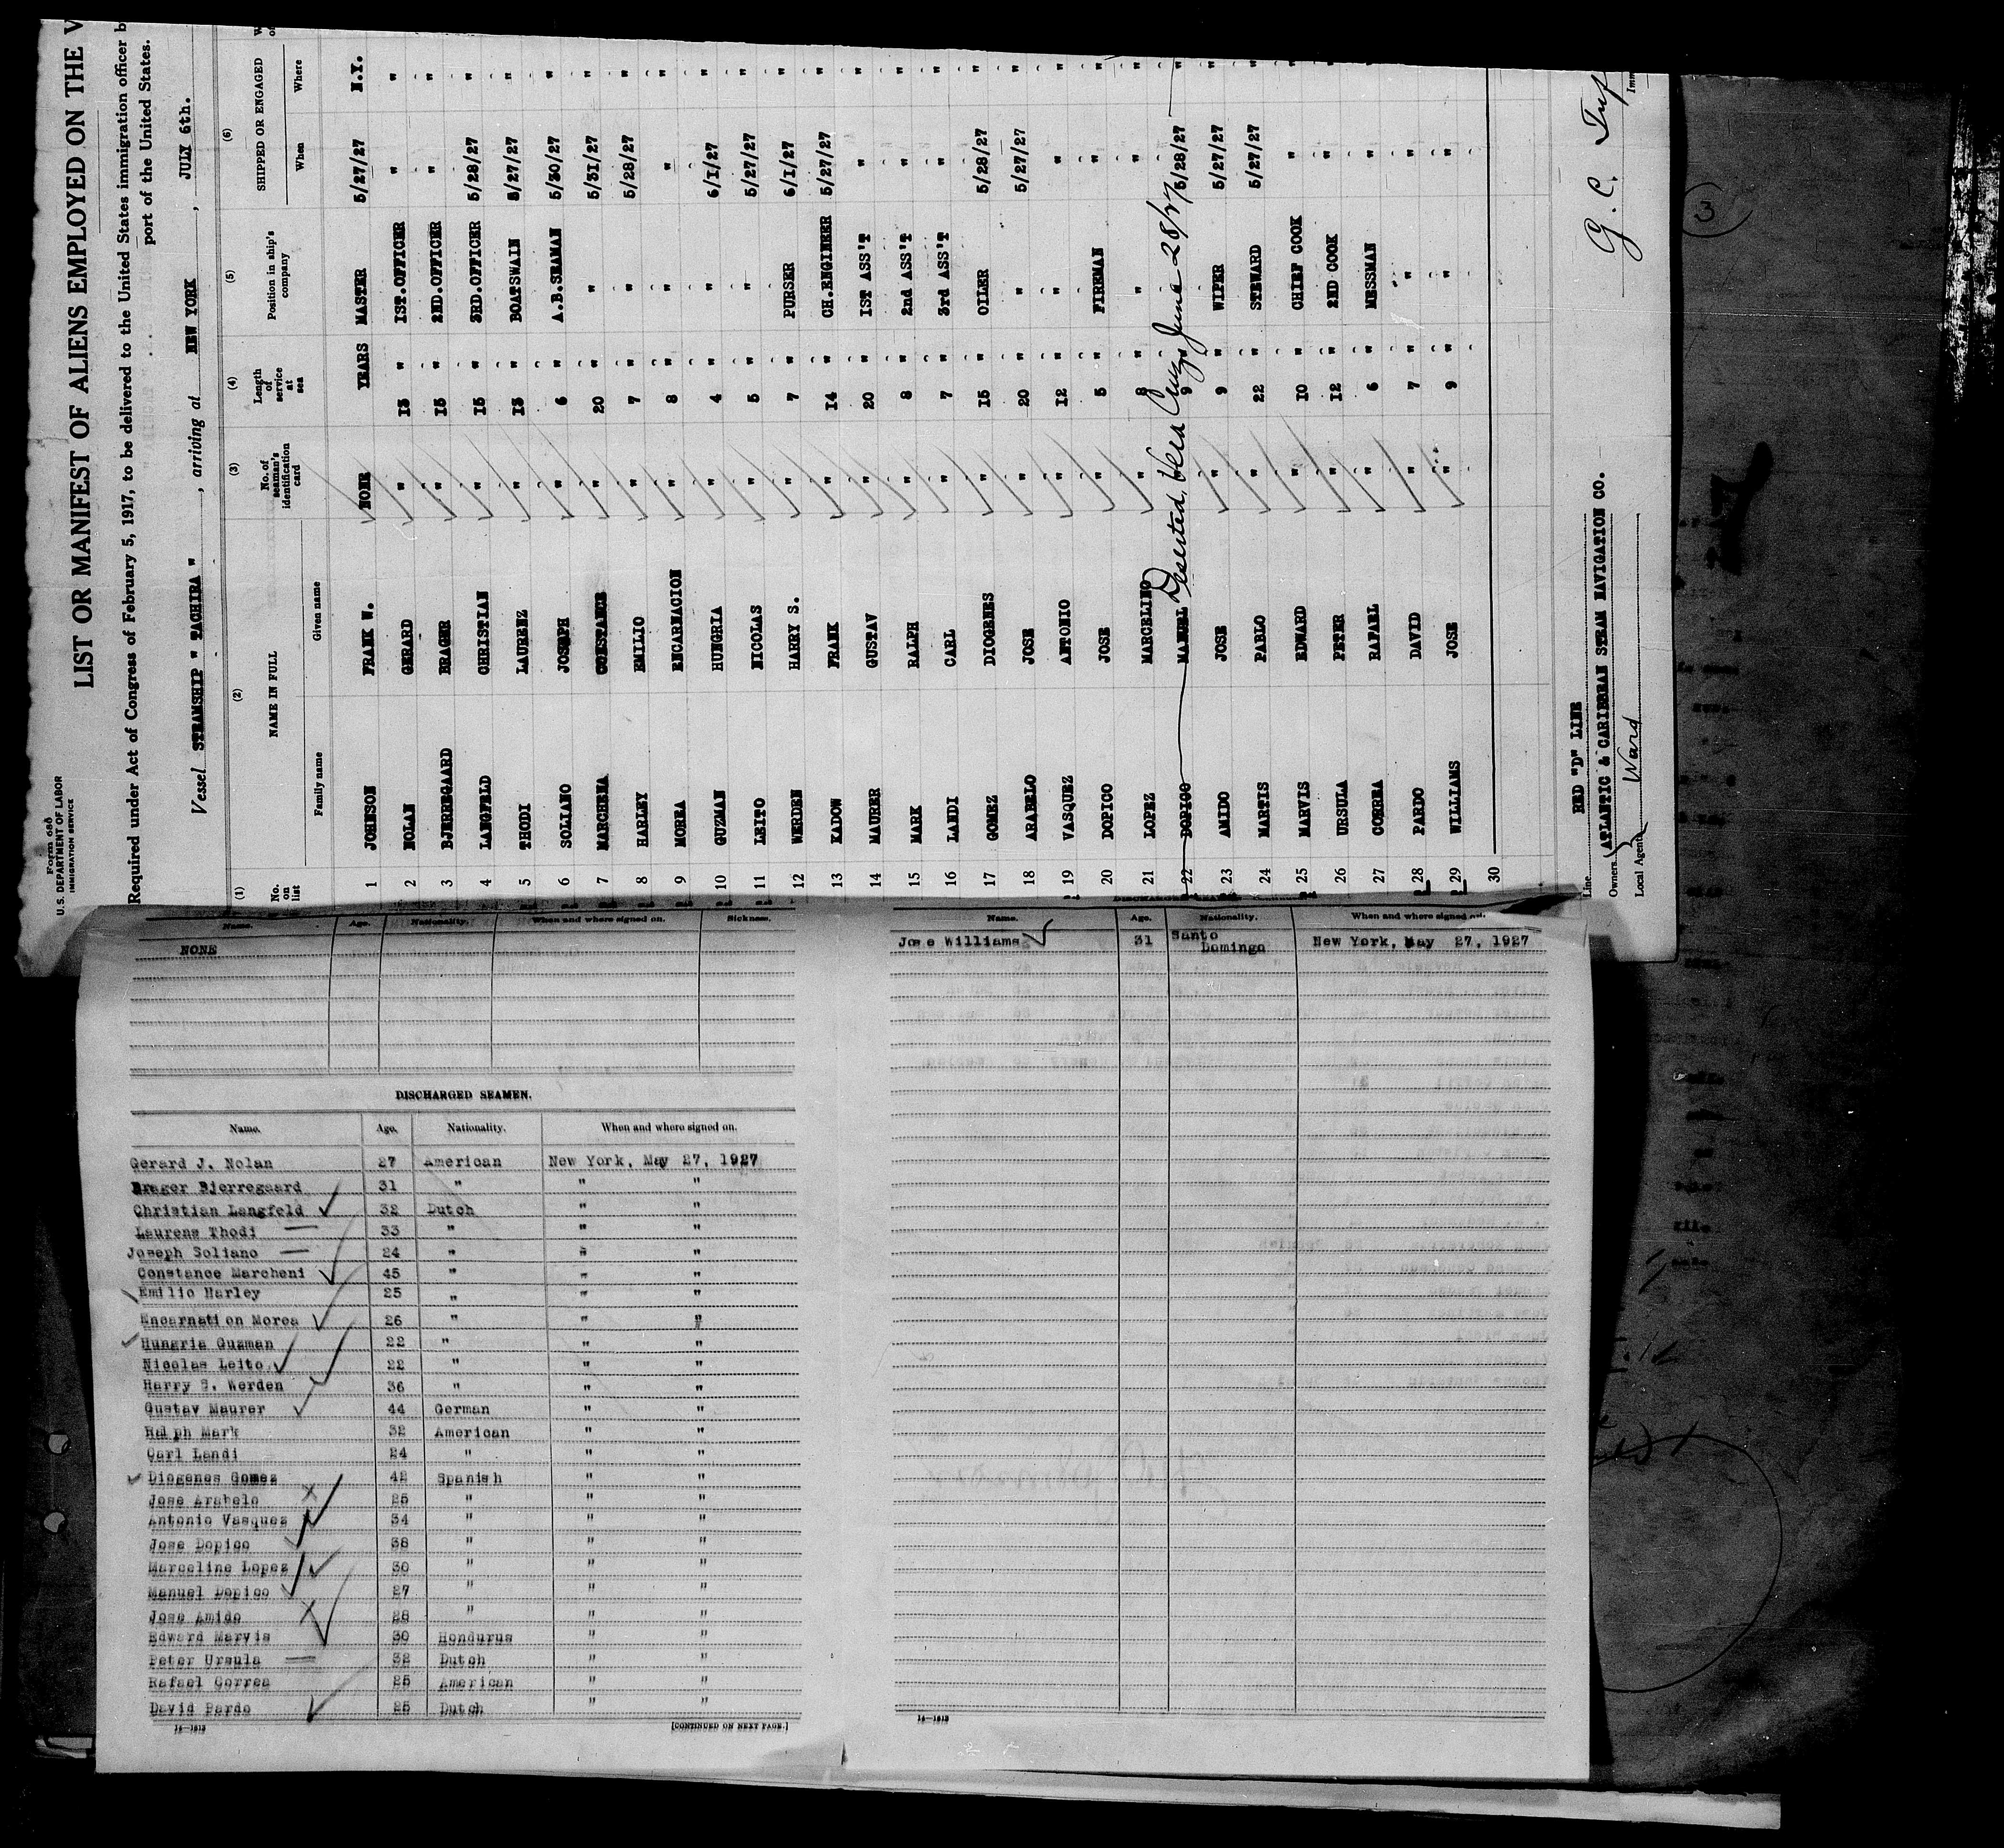 Form 680
U.S. DEPARTMENT OF LABOR
IMMIGRATION SERVICE
LIST OR MANIFEST OF ALIENS EMPLOYED ON THE V
Required under Act of Congress of February 5, 1917, to be delivered to the United States immigration officer b
port of the United States.
Vessel STEAMSHIP " TACHIRA " , arriving at NEW YORK , JULY 6th.
(1) (2) (3) (4) (5) (6)
No. on list NAME IN FULL No. of seaman's identification card Length of service at sea Position in ship's company SHIPPED OR ENGAGED
Family name Given name When Where
1 JOHNSON FRANK W. NONE YEARS MASTER 5/27/27 N.Y.
2 NOLAN GERARD " 13 " IST.OFFICER " "
3 BJERREGAARD BRAGER " 15 " 2ND.OFFICER " "
4 LANGFELD CHRISTIAN " 15 " 3RD.OFFICER 5/28/27 "
5 THODI LAURENZ " 13 " BOATSWAIN 5/27/27 "
6 SOLIANO JOSEPH " 6 " A.B.SEAMAN 5/30/27 "
7 MARCHENA CONSTANCE " 20 " " 5/31/27 "
8 HARLEY EMILIO " 7 " " 5/28/27 "
9 MOREA ENCARNACION " 8 " " " "
10 GUZMAN HUNGRIA " 4 " " 6/1/27 "
11 LEITO NICOLAS " 5 " " 5/27/27 "
12 WERDEN HARRY S. " 7 " PURSER 6/1/27 "
13 KADOW FRANK " 14 " CH.ENGINEER 5/27/27 "
14 MAURER GUSTAV " 20 " IST ASS'T " "
15 MARK RALPH " 8 " 2nd ASS'T " "
16 LANDI CARL " 7 " 3rd ASS'T " "
17 GOMEZ DIOGENES " 15 " OILER 5/28/27 "
18 ARABELO JOSE " 20 " " 5/27/27 "
19 VASQUEZ ANTONIO " 12 " " " "
20 DOPICO JOSE " 5 " FIREMAN " "
21 LOPEZ MARCELINO " 8 " " " "
22 DOPICO MANUEL Deserted, Vera Cruz, June 28/27 9 5/28/27 "
23 AMIDO JOSE " 9 " WIPER 5/27/27 "
24 MARTIS PABLO " 22 " STEWARD 5/27/27 "
25 MARVIS EDWARD " 10 " CHIEF COOK " "
26 URSULA PETER " 12 " 2ND COOK " "
27 CORREA RAFAEL " 6 " MESSMAN " "
28 PARDO DAVID " 7 " " " "
29 WILLIAMS JOSE " 9 " " " "
30
Line RED "D" LINE
Owners ATLANTIC & CARIBBEAN STEAM NAVIGATION CO.
Local Agents Ward
G. C.
3
Name. Age. Nationality. When and where signed on. Sickness.
NONE
DISCHARGED SEAMEN.
Name. Age. Nationality. When and where signed on.
Gerard J. Nolan 27 American New York, May 27, 1927
Brager Bjerregaard 31 " " "
Christian Langfeld 32 Dutch " "
Laurens Thodi 33 " " "
Joseph Soliano 24 " " "
Constance Marcheni 45 " " "
Emilio Harley 25 " " "
Encarnation Morea 26 " " "
Hungria Guzman 22 " " "
Nicolas Leito 22 " " "
Harry S. Werden 36 " " "
Gustav Maurer 44 German " "
Ralph Mark 32 American " "
Carl Landi 24 " " "
Diogenes Gomez 42 Spanish " "
Jose Arabelo 25 " " "
Antonio Vasquez 34 " " "
Jose Dopico 38 " " "
Marceline Lopez 30 " " "
Manuel Dopico 27 " " "
Jose Amido 28 " " "
Edward Marvis 30 Hondurus " "
Peter Ursula 32 Dutch " "
Rafael Correa 25 American " "
David Pardo 25 Dutch " "
16—1613 [CONTINUED ON NEXT PAGE.]
Name. Age. Nationality. When and where signed on.
Jose Williams 31 Santo Domingo New York, May 27, 1927
16—1613